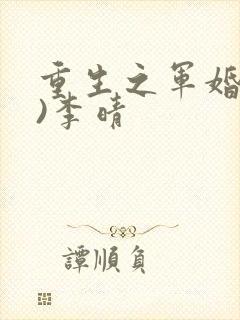 重生之军婚
)李晴
譚順負